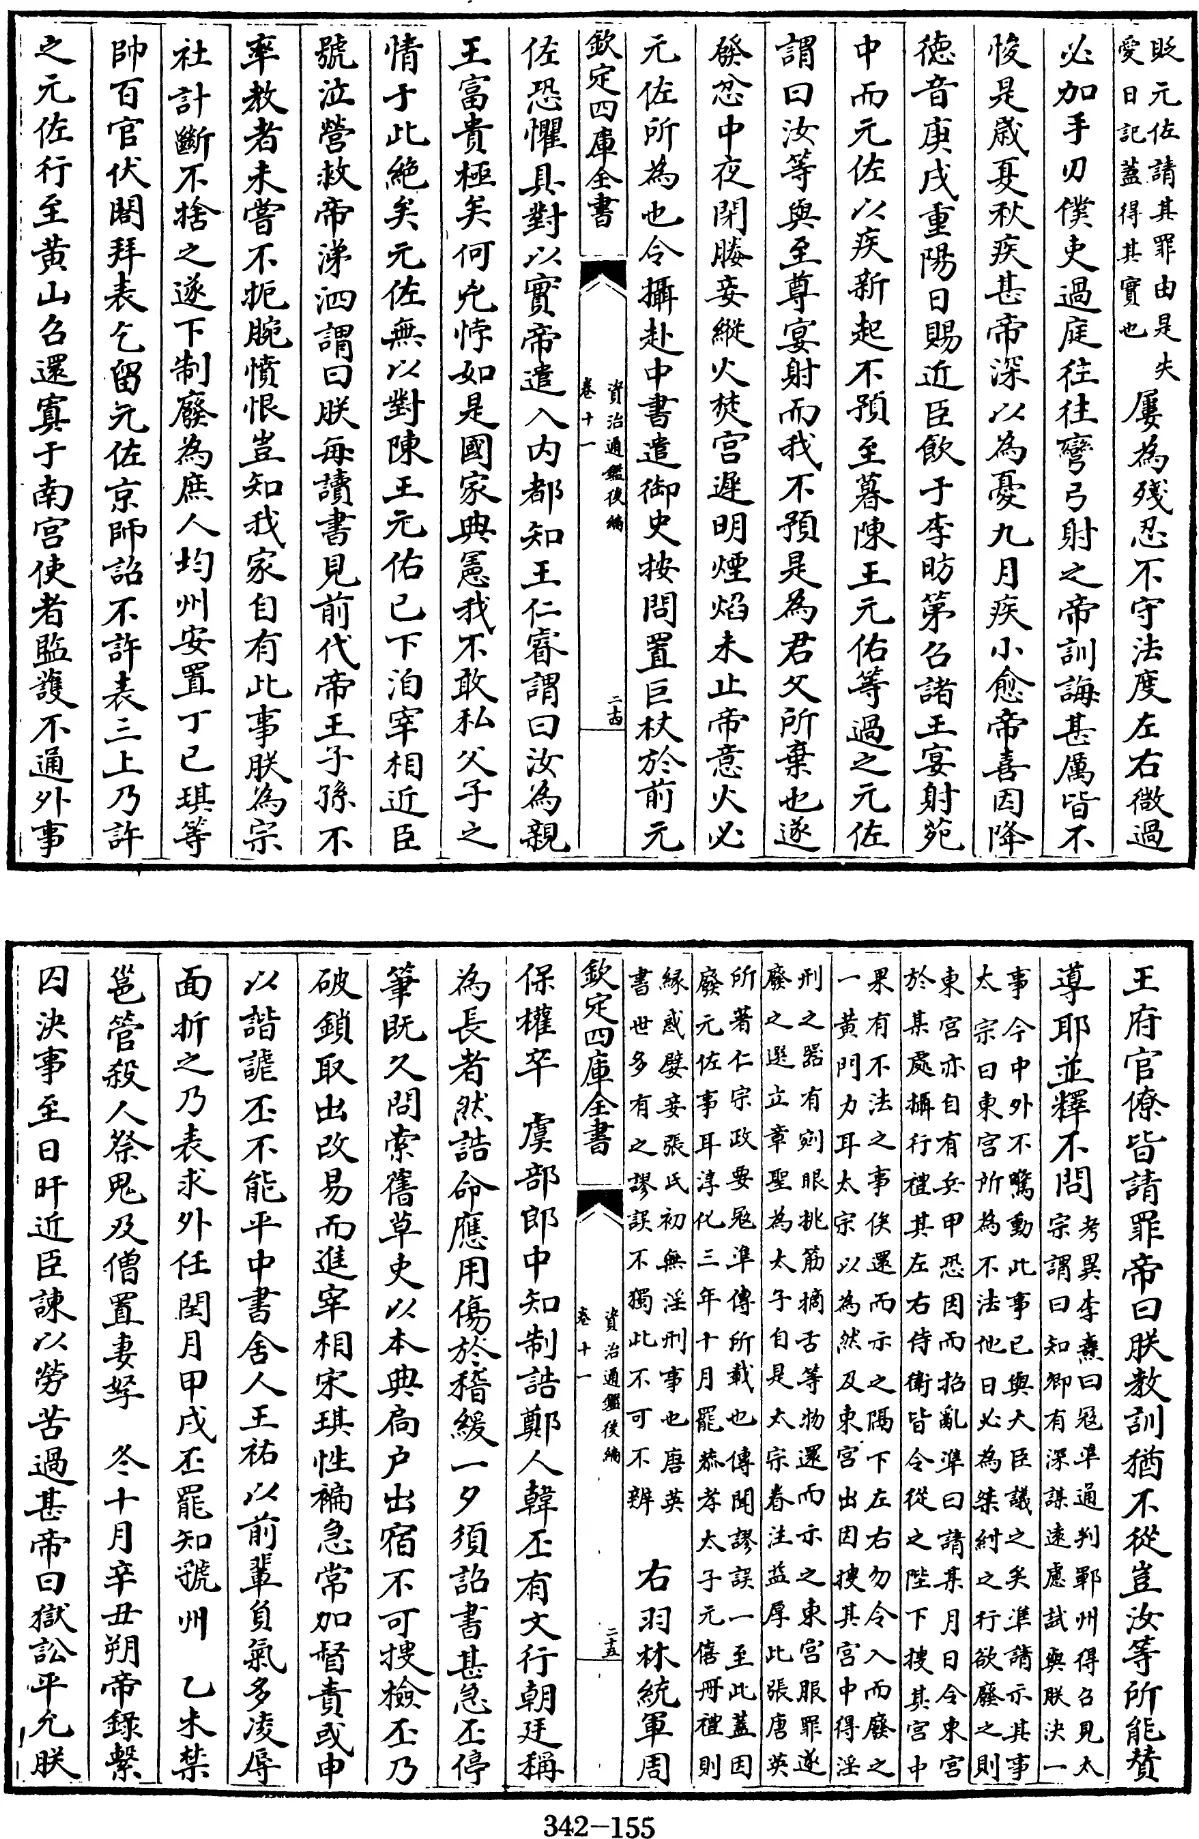 貶元佐請其罪由是失
愛日記蓋得其實也
屢為殘忍不守法度左右微過
必加手刃僕吏過庭往往彎弓射之帝訓誨甚厲皆不
悛是嵗夏秋疾甚帝深以為憂九月疾小愈帝喜因降
德音庚戌重陽日賜近臣飲于李昉第召諸王宴射苑
中而元佐以疾新起不預至暮陳王元佑等過之元佐
謂曰汝等與至尊宴射而我不預是為君父所棄也遂
發忿中夜閉媵妾縱火焚宫遲明煙焰未止帝意火必
元佐所為也令攝赴中書遣御史按問置巨杖於前元
欽定四庫全書
資治通鑑後編
卷十一
二十四
佐恐懼具對以實帝遣入内都知王仁睿謂曰汝為親
王富貴極矣何兇悖如是國家典憲我不敢私父子之
情于此絶矣元佐無以對陳王元佑已下洎宰相近臣
號泣營救帝涕泗謂曰朕每讀書見前代帝王子孫不
率教者未嘗不扼腕憤恨豈知我家自有此事朕為宗
社計斷不捨之遂下制廢為庶人均州安置丁已琪等
帥百官伏閤拜表乞留元佐京師詔不許表三上乃許
之元佐行至黄山召還寘于南宫使者監護不通外事
王府官僚皆請罪帝曰朕教訓猶不從豈汝等所能賛
導耶並釋不問
考異李燾曰冦準通判鄆州得召見太
宗謂曰知卿有深謀遠慮試與朕決一
事令中外不驚動此事已與大臣議之矣準請示其事
太宗曰東宫所為不法他日必為桀紂之行欲廢之則
東宫亦自有兵甲恐因而招亂準曰請某月日令東宫
於某處攝行禮其左右侍衛皆令從之陛下搜其宫中
果有不法之事俟還而示之隔下左右勿令入而廢之
一黄門力耳太宗以為然及東宫出因搜其宫中得淫
刑之器有剜眼挑筋摘舌等物還而示之東宫服罪遂
廢之選立章聖為太子自是太宗眷注益厚此張唐英
所著仁宗政要冦準傳所載也傳聞謬誤一至此蓋因
廢元佐事耳淳化三年十月罷恭孝太子元僖冊禮則
縁惑嬖妾張氏初無淫刑事也唐英
書世多有之謬誤不獨此不可不辨
右羽林統軍周
欽定四庫全書
資治通鑑後編
卷十一
二十五
保權卒　虞部郎中知制誥鄭人韓丕有文行朝廷稱
為長者然誥命應用傷於稽緩一夕須詔書甚急丕停
筆既久問索舊草吏以本典扃户出宿不可搜檢丕乃
破鎖取出改易而進宰相宋琪性褊急常加督責或申
以諧謔丕不能平中書舍人王祐以前輩負氣多凌辱
面折之乃表求外任閏月甲戌丕罷知虢州　乙未禁
邕管殺人祭鬼及僧置妻孥　冬十月辛丑朔帝錄繫
囚決事至日旰近臣諫以勞苦過甚帝曰獄訟平允朕
342-155